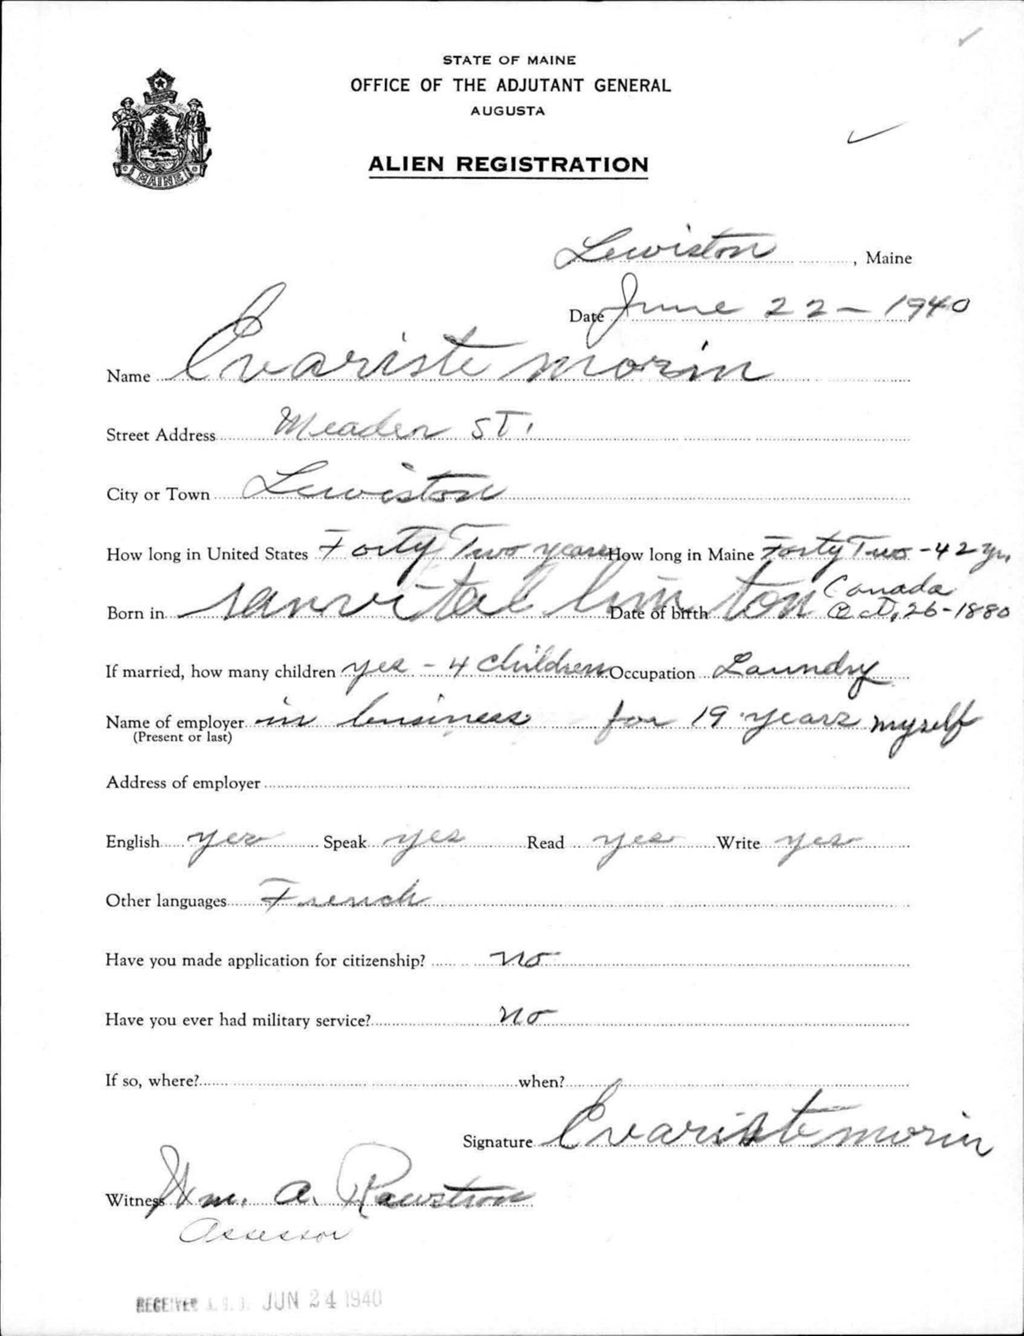 STATE OF MAINE
OFFICE OF THE ADJUTANT GENERAL
AUGUSTA
ALIEN REGISTRATION
MAINE
Lewiston, Maine
Date June 22 - 1940
Name Evariste morin
Street Address Meader ST.
City or Town Lewiston
How long in United States Forty Two years How long in Maine Forty Two - 42 yr.
Born in sanvital limton Canada Date of birth Oct, 26 - 1880
If married, how many children yes - 4 children Occupation Laundry
Name of employer in business for 19 years myself
(Present or last)
Address of employer
English yes Speak yes Read yes Write yes
Other languages French
Have you made application for citizenship? no
Have you ever had military service? no
If so, where? when?
Signature Evariste morin
Witness Wm. A. Rawstron
Assessor
RECEIVED JUN 24 1940